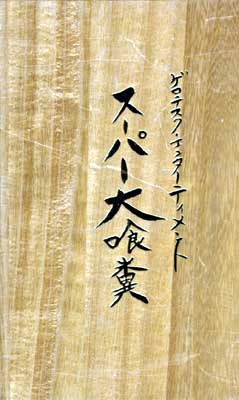 ゲロテスク・エンターティメント
スーパー大喰糞